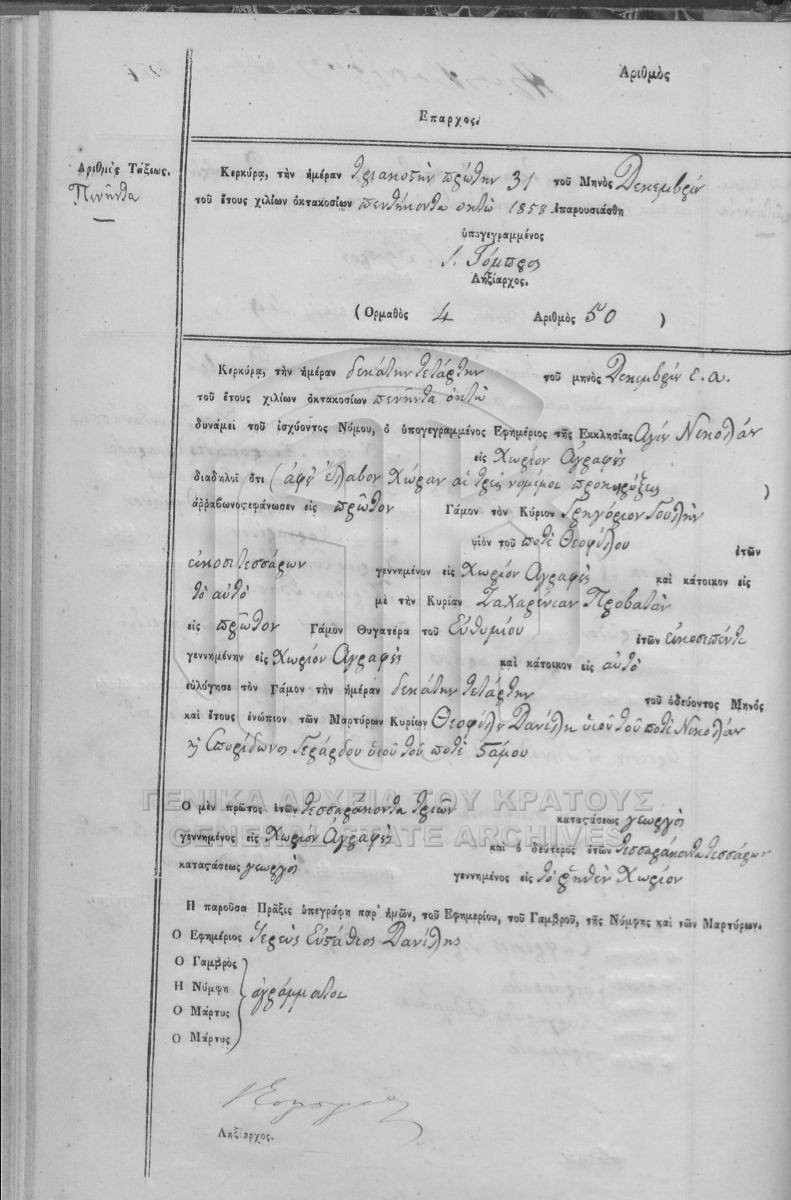 Αριθμὸς
Επαρχος.
Αριθμὸς Τάξεως.
Πενῆντα
Κερκύρα, τὴν ἡμέραν τριακοστὴν πρώτην 31 τοῦ Μηνὸς Δεκεμβρίȣ
τοῦ ἔτους χιλίων ὀκτακοσίων πεντήκοντα ὀκτὼ 1858 ἐπαρουσιάσθη
ὑπογεγραμμένος
Ληξίαρχος.
(Ορμαθὸς 4 Αριθμὸς 50 )
Κερκύρα, τὴν ἡμέραν δεκάτην τετάρτην τοῦ μηνὸς Δεκεμβρίȣ ἐ. π.
τοῦ ἔτους χιλίων ὀκτακοσίων πενῆντα ὀκτὼ
δυνάμει τοῦ ἰσχύοντος Νόμου, ὁ ὑπογεγραμμένος Εφημέριος τῆς Εκκλησίας Αγίȣ Νικολάȣ
εἰς Χωρίον Αγραφȣς
διαδηλοῖ ὅτι (ἀφȣ̃ ἔλαβον Χώραν αἱ τρεῖς νομίμοι προκηρύξεις )
ἀῤῥαβωνοςεφάνωσεν εἰς πρῶτον Γάμον τὸν Κύριον Γρηγόριον Γουλὴν
υἱὸν τοῦ ποτὲ Θεοφίλου ἐτῶν
εἰκοσιτεσσάρων γεννημένον εἰς Χωρίον Αγραφȣς καὶ κάτοικον εἰς
τὸ αὐτὸ μὲ τὴν Κυρίαν Ζαχαρένιαν Προβατᾶν
εἰς πρῶτον Γάμον Θυγατέρα τοῦ Εὐθυμίου ἐτῶν εἰκοσιπέντε
γεννημένην εἰς Χωρίον Αγραφȣς καὶ κάτοικον εἰς αὐτὸ
εὐλόγησε τὸν Γάμον τὴν ἡμέραν δεκάτην τετάρτην τοῦ ὁδεύοντος Μηνὸς
καὶ ἔτους ἐνώπιον τῶν Μαρτύρων Κυρίων Θεοφίλȣ Δανίλη υἱοῦ τοῦ ποτὲ Νικολάȣ
ϗ Σπυρίδωνος Γεράρδου ὑιοῦ τοῦ ποτὲ Στάμου
Ο μὲν πρῶτος ἐτῶν τεσσαράκοντα τριῶν καταςάσεως γεωργὸς
γεννημένος εἰς Χωρίον Αγραφȣς καὶ ὁ δεύτερος ἐτῶν τεσσαράκοντα τεσσάρων
καταςάσεως γεωργὸς γεννημένος εἰς τὸ ῥηθὲν Χωρίον
Η παροῦσα Πρᾶξις ὑπεγράφη παρ' ἡμῶν, τοῦ Εφημερίου, τοῦ Γαμβροῦ, τῆς Νύμφης καὶ τῶν Μαρτύρων.
Ο Εφημέριος Ἱερεὺς Εὐστάθιος Δανίλης
Ο Γαμβρὸς
Η Νύμφη ἀγράμματοι
Ο Μάρτυς
Ο Μάρτυς
Ληξίαρχος.
ΓΕΝΙΚΑ ΑΡΧΕΙΑ ΤΟΥ ΚΡΑΤΟΥΣ
GENERAL STATE ARCHIVES